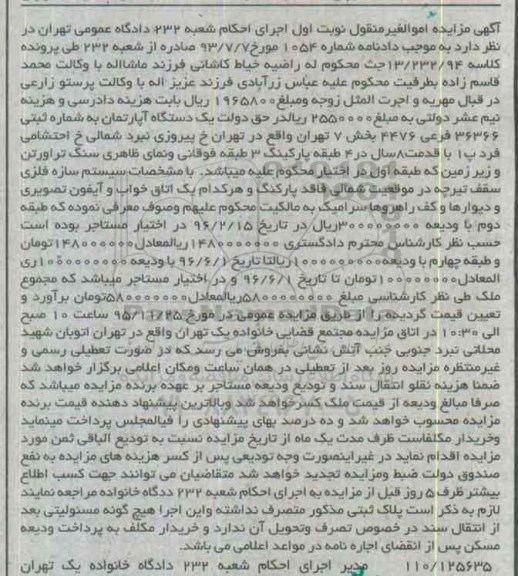 آگهی مزایده اموالغیرمنقول نوبت اول اجرای احکام شعبه ۲۳۲ دادگاه عمومی تهران در
نظر دارد به موجب دادنامه شماره ۱۰۵۴ مورخ۹۳/۷/۷ صادره از شعبه ۲۳۲ طی پرونده
کلاسه ۱۳/۲۳۲/۹۴جث محکوم له راضیه خیاط کاشانی فرزند ماشااله با وکالت محمد
قاسم زاده بطرفیت محکوم علیه عباس زرآبادی فرزند عزیز اله با وکالت پرستو زارعی
در قبال مهریه و اجرت المثل زوجه ومبلغ۱۹۶۵۸۰۰ ریال بابت هزینه دادرسی و هزینه
نیم عشر دولتی به مبلغ۲۵۵۰۰۰۰ ریالدر حق دولت یک دستگاه آپارتمان به شماره ثبتی
۳۶۳۶۶ فرعی ۴۴۷۶ بخش ۷ تهران واقع در تهران خ پیروزی نبرد شمالی خ احتشامی
فرد پ۱ با قدمت۸سال در۴ طبقه پارکینگ ۳ طبقه فوقانی ونمای ظاهری سنگ تراورتن
و زیر زمین که طبقه اول در اختیار محکوم علیه میباشد. با مشخصات سیستم سازه فلزی
سقف تیرچه در موقعیت شمالی فاقد پارکنگ و هرکدام یک اتاق خواب و آیفون تصویری
و دیوارها و کف راهروها سرامیک به مالکیت محکوم علیهم وصوف معرفی نموده که طبقه
دوم با ودیعه ریال در تاریخ ۹۶/۲/۱۵ در اختیار مستاجر بوده است
حسب نظر کارشناس محترم دادگستری ریالمعادل تومان
و طبقه چهارم با ودیعه ریالتا تاریخ ۹۶/۶/۱ با ودیعه ری
المعادل تومان تا تاریخ ۹۶/۶/۱ و در اختیار مستاجر میباشد که مجموع
ملک طی نظر کارشناسی مبلغ ریالمعادل تومان برآورد و
تعیین قیمت گردیده را از طریق مزایده عمومی در مورخ ۹۵/۱۲/۲۵ ساعت ۱۰ صبح
الی ۱۰:۳۰ در اتاق مزایده مجتمع قضایی خانواده یک تهران واقع در تهران اتوبان شهید
محلاتی نبرد جنوبی جنب آتش نشانی بفروش می رسد که در صورت تعطیلی رسمی و
غیرمنتظره مزایده روز بعد از تعطیلی در همان ساعت ومکان اعلامی برگزار خواهد شد
ضمنا هزینه نقلو انتقال سند و تودیع ودیعه مستاجر بر عهده برنده مزایده میباشد که
صرفا مبالغ ودیعه از قیمت ملک کسرخواهد شد وبالاترین پیشنهاد دهنده قیمت برنده
مزایده محسوب خواهد شد و ده درصد بهای پیشنهادی را فیالمجلس پرداخت مینماید
وخریدار مکلفاست ظرف مدت یک ماه از تاریخ مزایده نسبت به تودیع الباقی ثمن مورد
مزایده اقدام نماید در غیراینصورت وجه تودیعی پس از کسر هزینه های مزایده به نفع
صندوق دولت ضبط ومزایده تجدید خواهد شد متقاضیان می توانند جهت کسب اطلاع
بیشتر ظرف ۵ روز قبل از مزایده به اجرای احکام شعبه ۲۳۲ ددگاه خانواده مراجعه نمایند
لازم به ذکر است پلاک ثبتی مذکور متصرف نداشته واین اجرا هیچ گونه مسئولیتی بعد
از انتقال سند در خصوص تصرف وتحویل آن ندارد و خریدار مکلف به پرداخت ودیعه
مسکن پس از انقضای اجاره نامه در مواعد اعلامی می باشد.
۱۱۰/۱۲۵۶۳۵ مدیر اجرای احکام شعبه ۲۳۲ دادگاه خانواده یک تهران